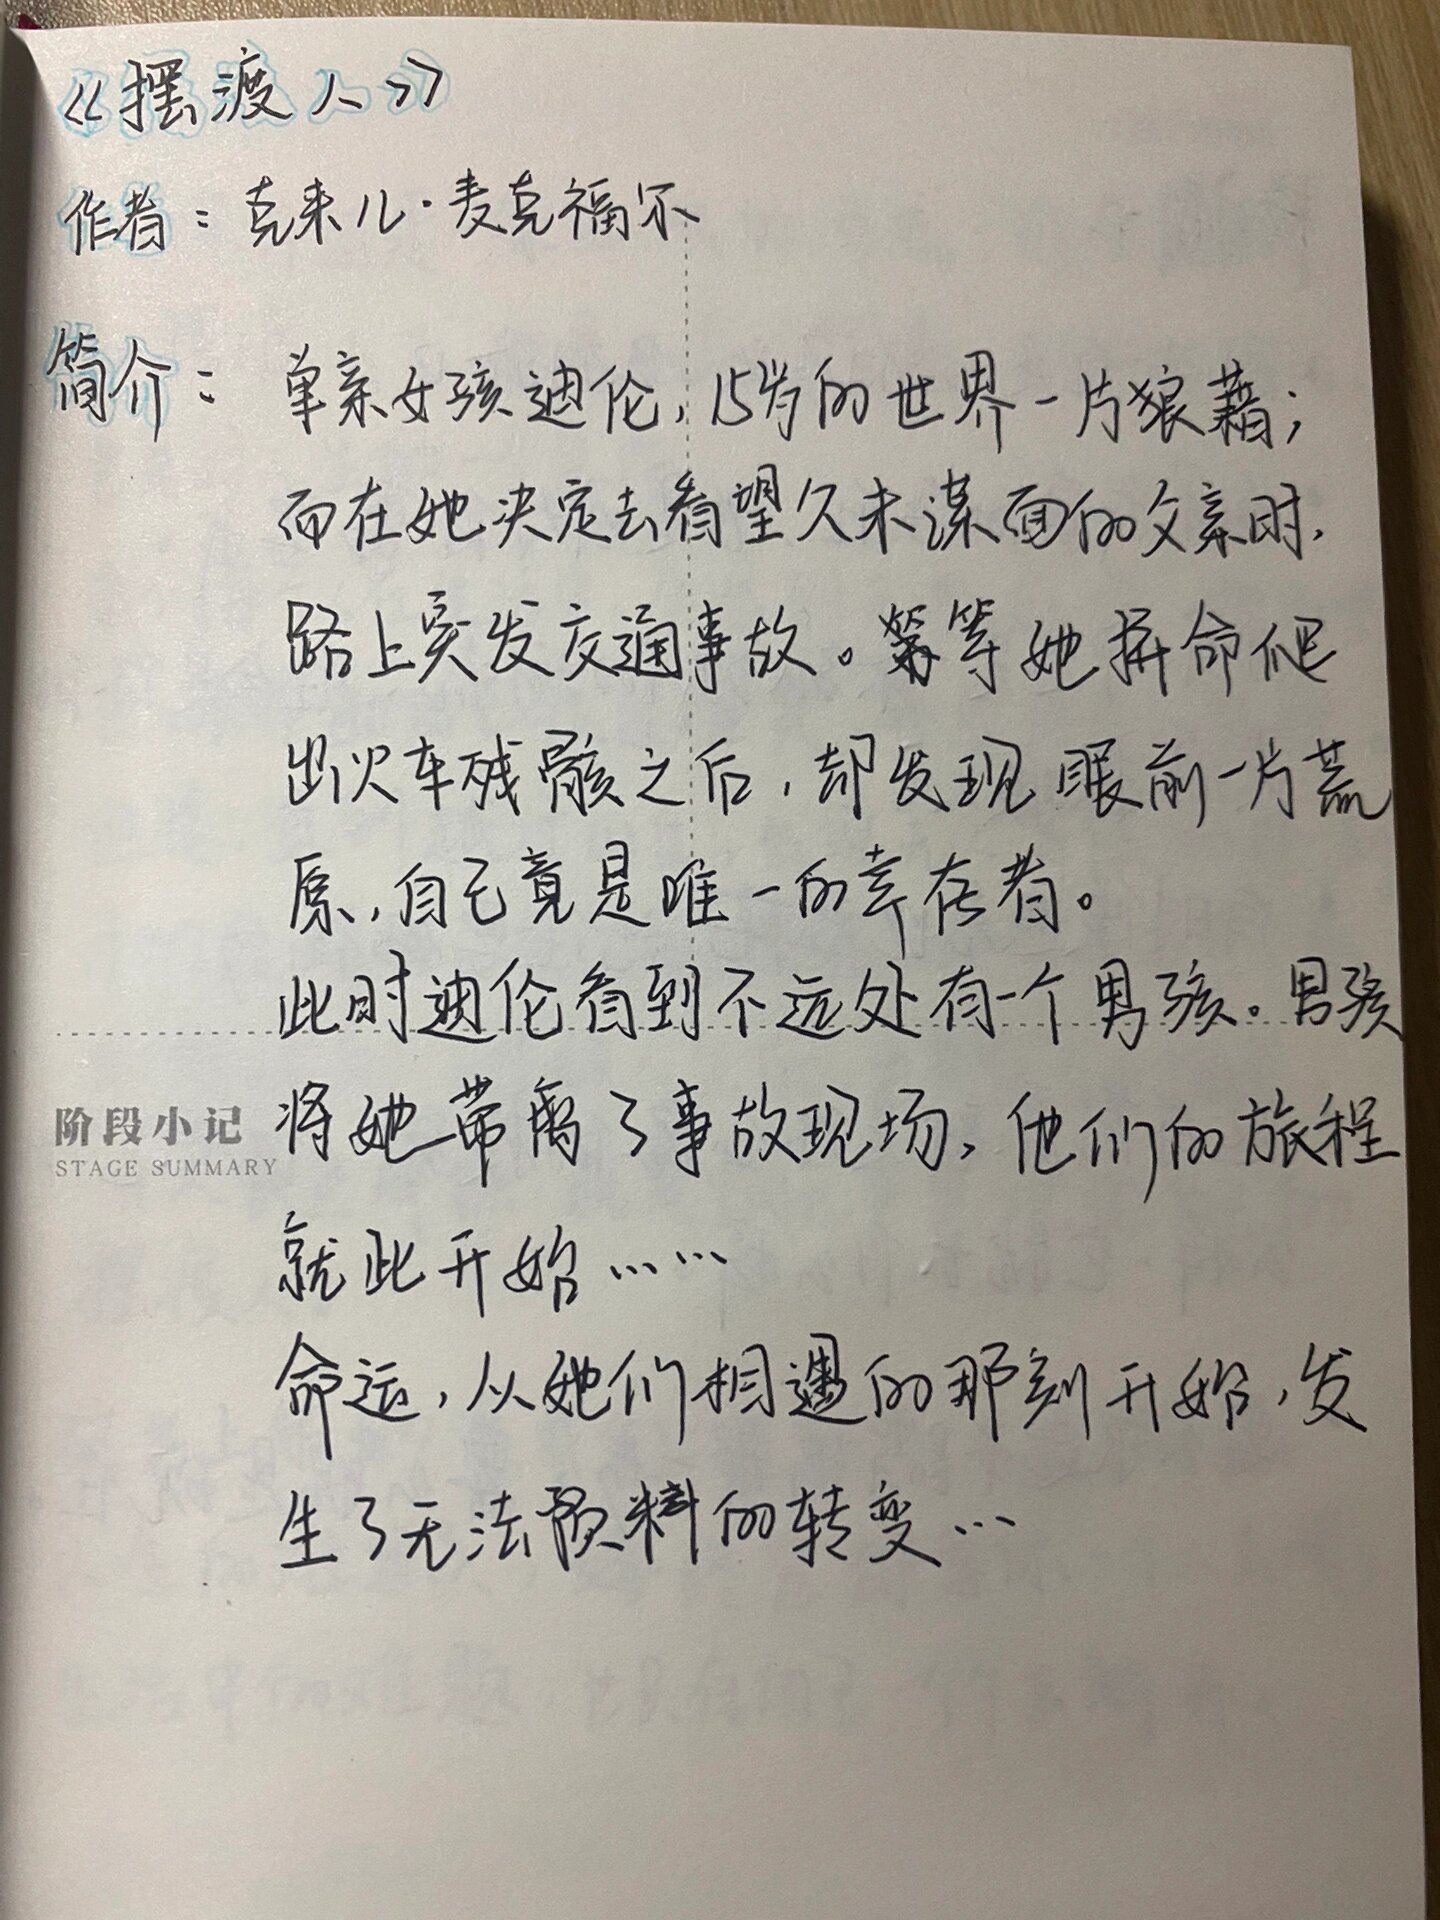 《摆渡人》
作者：克来儿·麦克福尔
简介：单亲女孩迪伦，15岁的世界一片狼藉；
而在她决定去看望久未谋面的父亲时，
路上突发交通事故。等她拼命爬
出火车残骸之后，却发现眼前一片荒
原，自己竟是唯一的幸存者。
此时迪伦看到不远处有一个男孩。男孩
将她带离了事故现场，他们的旅程
就此开始……
命运，从她们相遇的那刻开始，发
生了无法预料的转变…
阶段小记
STAGE SUMMARY